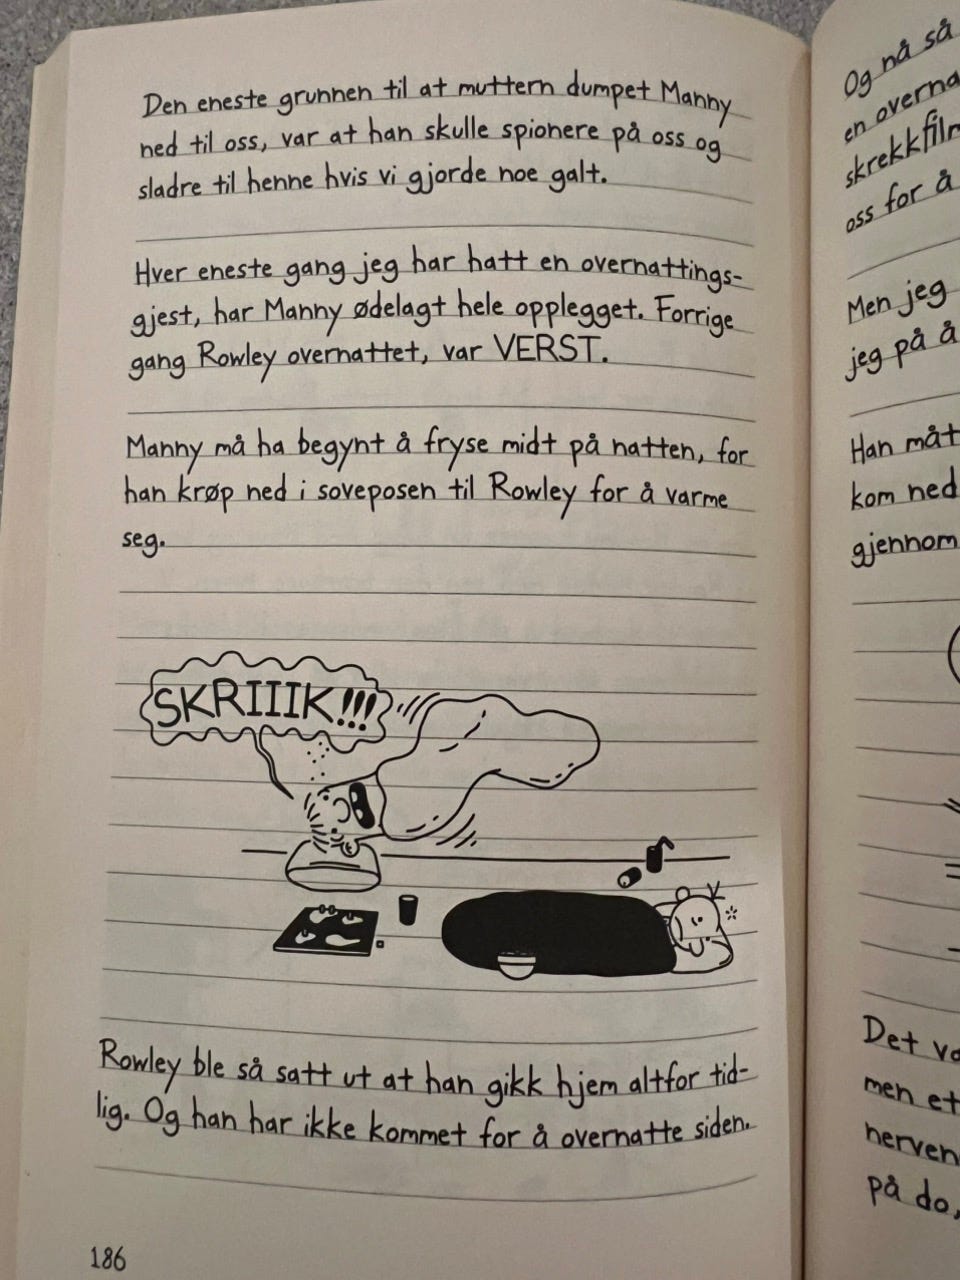 Den eneste grunnen til at muttern dumpet Manny
ned til oss, var at han skulle spionere på oss og
sladre til henne hvis vi gjorde noe galt.
Hver eneste gang jeg har hatt en overnattings-
gjest, har Manny ødelagt hele opplegget. Forrige
gang Rowley overnattet, var VERST.
Manny må ha begynt å fryse midt på natten, for
han krøp ned i soveposen til Rowley for å varme
seg.
SKRIIIK!!!
Rowley ble så satt ut at han gikk hjem altfor tid-
lig. Og han har ikke kommet for å overnatte siden.
186
Og nå så
en
oss for å
Men jeg
jeg på å
Han
kom ned
gjennom
Det
men et
på do,